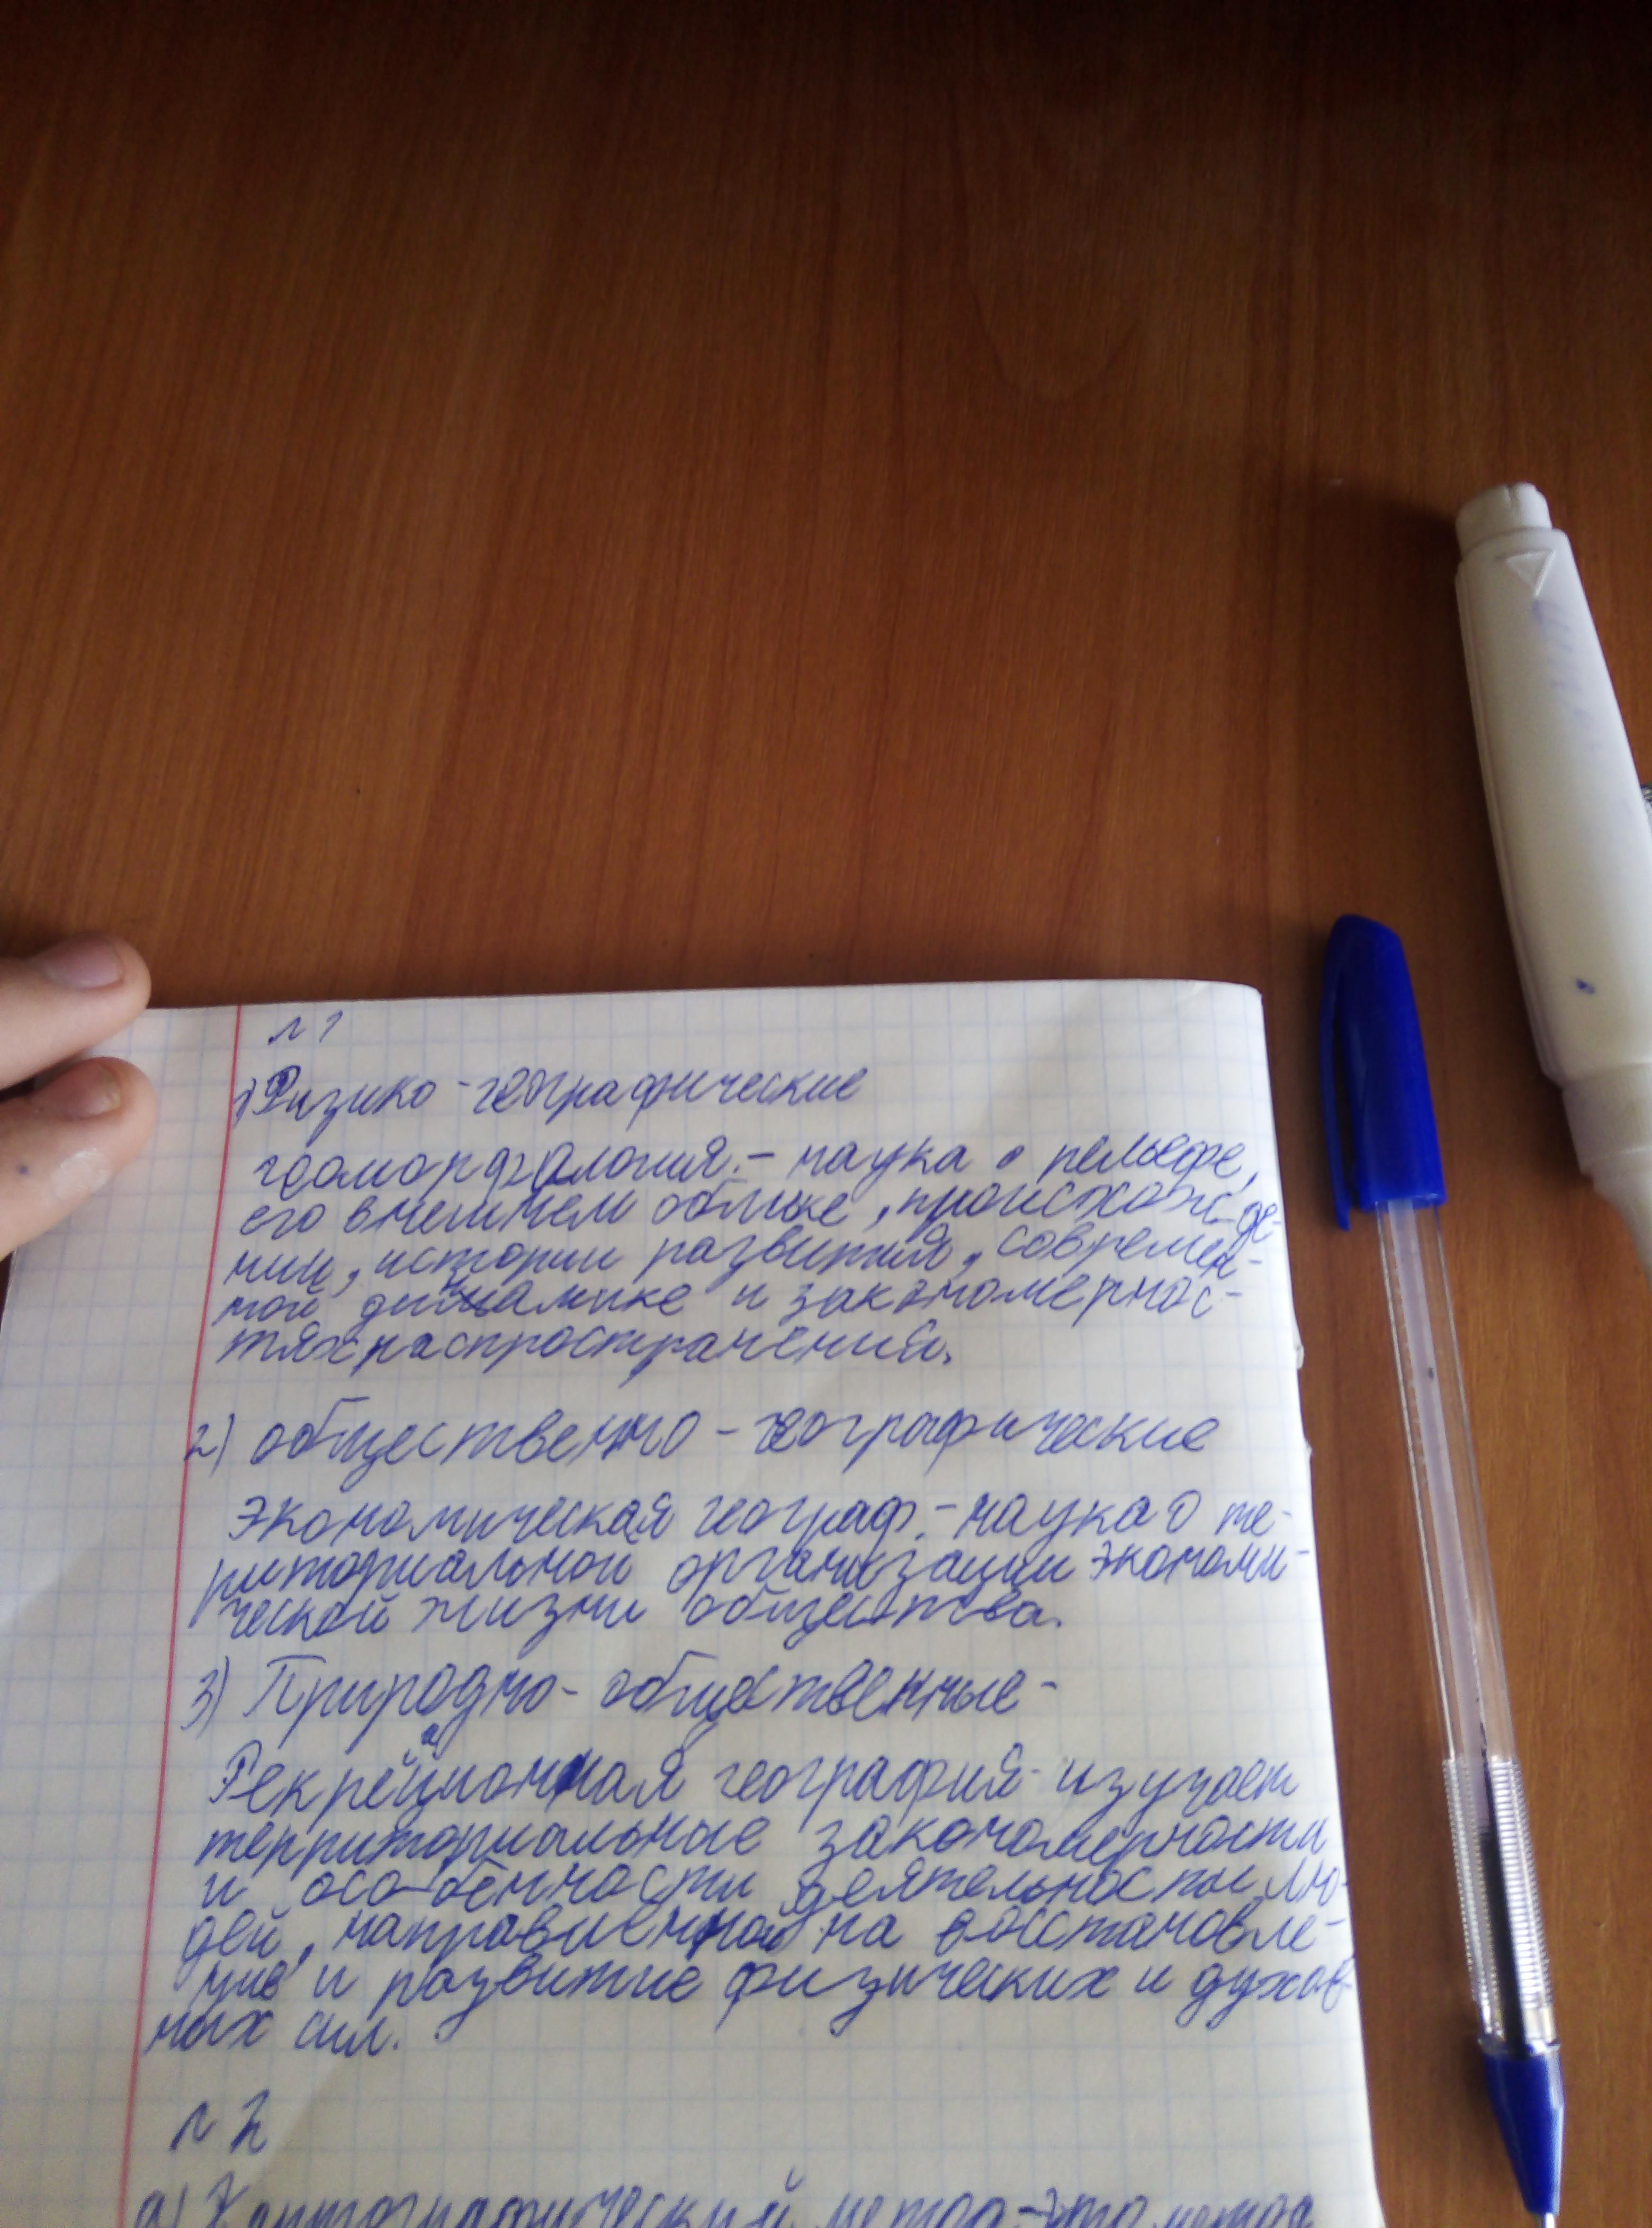 №1
1) Физико-географические
геоморфология.- наука о рельефе,
его внешнем облике, происхожде-
нии, истории развития, современ-
ной динамике и закономернос-
тях распространения.
2) общественно-географические
Экономическая географ.-наука о те-
риториальной организации экономи-
ческой жизни общества.
3) Природно-общественные-
Рекреационная география-изучает
территориальные закономерности
и особенности деятельности лю-
дей, направленной на восстановле-
ние и развитие физических и духов-
ных сил.
№2
а) Картографический метод-это метод